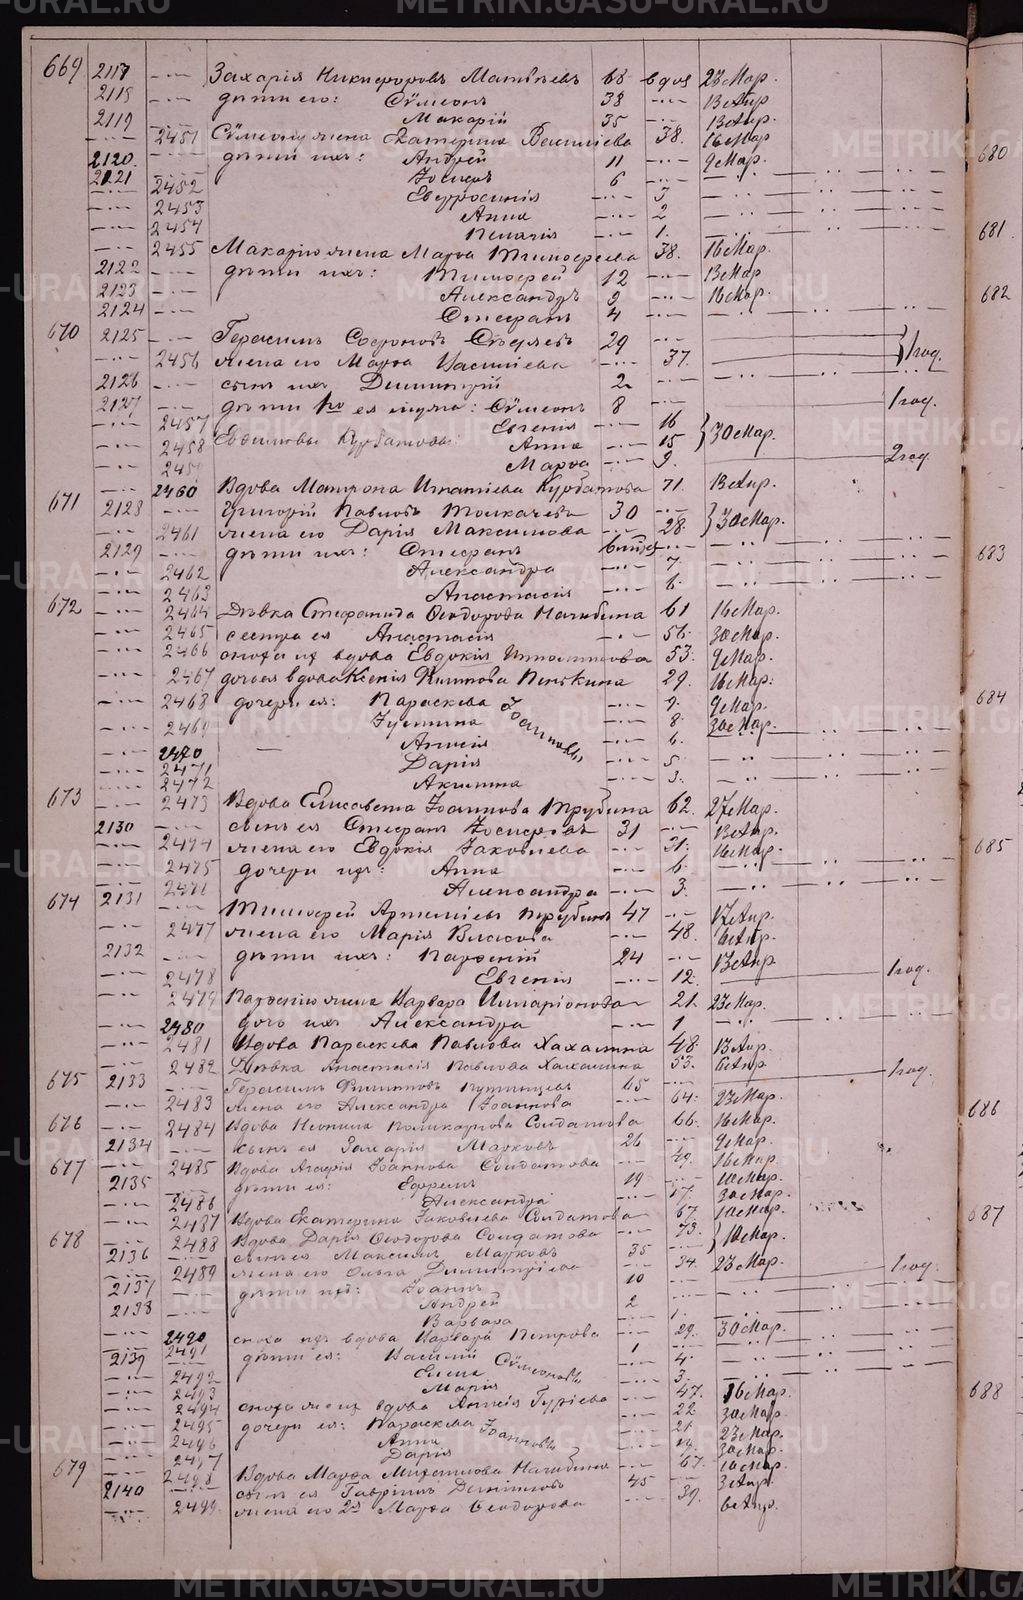 METRIKI.GASO-URAL.RU
669 2117 Захарія Никифоровъ Матвѣевъ 68 вдов 23 Мар.
2118 дѣти его: Сѵмеонъ 38 13 Апр
2119 Макарій 35 13 Апр.
2451 Сѵмеону жена Екатерина Василіева 38. 16 Мар
2120 дѣти ихъ: Андрей 11 9 Мар.
2121 Іосифъ 6
2452 Евфросинія 3
2453 Анна 2
2454 Пелагія 1.
2455 Макарію жена Марѳа Тимоѳеева 38. 16 Мар.
2122 дѣти ихъ: Тимоѳей 12 13 Мар
2123 Александръ 9 16 Мар.
2124 Стефанъ 4
670 2125 Герасимъ Софоновъ 29
2456 жена его Марѳа Василіева 37. 1 год.
2126 сынъ ихъ Димитрій 2
2127 дѣти ея мужа: Сѵмеонъ 8 1 год.
2457 Евгенія 16
2458 Евфимовы Курбатовы: Анна 15 30 Мар.
2459 Марѳа 9. 2 год
2460 Вдова Матрона Игнатіева Курбатова 71. 13 Апр.
671 2128 Григорій Павловъ Толкачевъ 30
2461 жена его Дарія Максимова 28. 30 Мар.
2129 дѣти ихъ: Стефанъ
2462 Александра 7.
2463 Анастасія 6.
672 2464 Дѣвка Стефанида Ѳеодорова Нагибина 61 16 Мар.
2465 сестра ея Анастасія 56. 30 Мар.
2466 сноха их вдова Евдокія 53. 9 Мар.
2467 дочь ея вдова Ксенія Филипова Пенькина 29. 16 Мар.
2468 дочери ея: Параскева Іоанновы 9. 9 Мар.
2469 Іустина 8. 30 Мар.
2470 Анисія 6.
2471 Дарія 5.
2472 Акилина 3.
673 2473 Вдова Елисавета Іоаннова Трубина 62. 27 Мар.
2130 сынъ ея Стефанъ Іосифовъ 31 13 Апр.
2474 жена его Евдокія Іаковлева 31. 16 Мар.
2475 дочери ихъ: Анна 6.
2476 Александра 3.
674 2131 Тимоѳей Артеміевъ Трубинъ 47 17 Апр.
2477 жена его Марія Власова 48. 6 Апр.
2132 дѣти ихъ: Парѳеній 24 13 Апр
2478 Евгенія 12. 1 год.
2479 Парѳенію жена Варвара Иларіонова 21. 23 Мар.
2480 дочь ихъ Александра 1
2481 Вдова Параскева Павлова Хахалина 48. 13 Апр.
2482 Дѣвка Анастасія Павлова Хахалина 53. 6 Апр
675 2133 Герасимъ Филиповъ Путинцевъ 65 1 год.
2483 жена его Александра Іоаннова 64. 23 Мар.
676 2484 Вдова Неонила Поликарпова Солдатова 66. 16 Мар.
2134 сынъ ея Захарія Марковъ 26 9 Мар.
677 2485 Вдова Агафія Іоаннова Солдатова 49. 16 Мар.
2135 дѣти ея: Ефремъ 19 10 Мар.
2486 Александра 17. 30 Мар.
2487 Вдова Екатерина Іаковлева Солдатова 67. 10 Мар.
678 2488 Вдова Дарія Ѳеодорова Солдатова 73.
2136 сынъ ея Максимъ Марковъ 35 10 Мар.
2489 жена его Ольга Димитріева 34. 23 Мар.
2137 дѣти ихъ: Іоаннъ 10 1 год.
2138 Андрей 2
Варвара 1.
2490 сноха их вдова Варвара Петрова 29. 30 Мар.
2491
2139 дѣти ея: Василій Сѵмеоновы 1
2492 Елена 4.
2493 Марія 3.
2494 сноха же их вдова Анисія Гуріева 47. 16 Мар.
2495 дочери ея: Параскева Іоанновы 22. 30 Мар.
2496 Анна 21. 23 Мар.
2497 Дарія 19. 30 Мар.
679 2498 Вдова Марѳа Михаилова Нагибина 67. 10 Мар.
2140 сынъ ея Гавріилъ 45 3 Апр.
2499 жена его 2я Марѳа Ѳеодорова 39. 6 Апр.
680
681
682
683
684
685
686
687
688